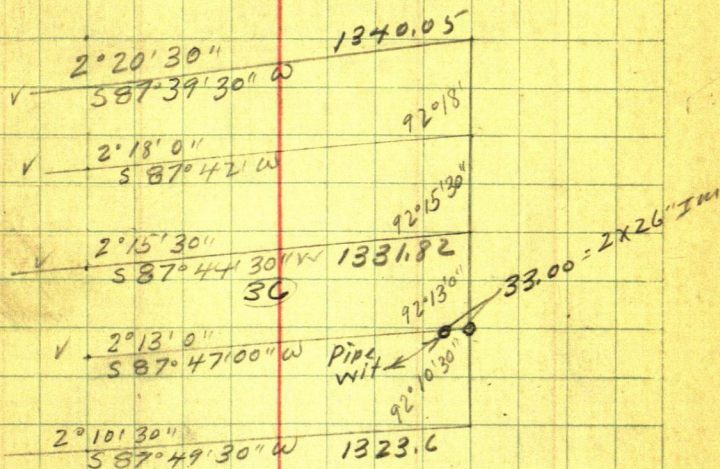 1340.05
2°20'30"
S87°39'30" W
92°18'
2°18'0"
S 87°42' W
92°15'30"
2°15'30"
S 87°44'30" W 1331.82
36
33.00 = 2x26"
92°13'0"
2°13'0"
S 87°47'00" W
Pipe
Wit
92°10'30"
2°10'30"
S 87°49'30" W 1323.6